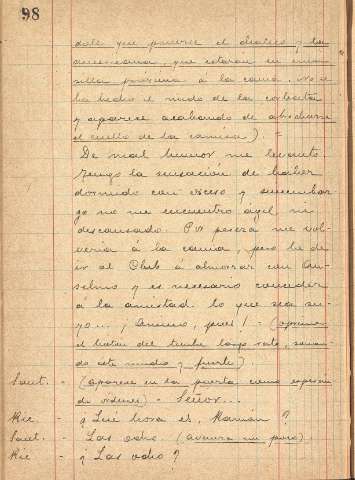 98
sale que parece el chaleco y la
americana, que estaran en una
silla proxima á la cama. No se
ha hecho el nudo de la corbata
y aparece acabando de abrocharse
el cuello de la camisa). -
De mal humor me levanto.
Tengo la sensación de haber
dormido con exceso y sin embar
go no me encuentro ágil, ni
descansado. Por pereza me vol-
vería á la cama, pero he de
ir al Club á almorzar con An-
selmo y es necesario conceder
á la amistad lo que sea su-
yo...; Animo, pues! - (oprime
el boton del timbre largo rato, sonan-
do este mucho y fuerte).
Sant. - (aparece en la puerta como esperan
do ordenes) - Señor...
Ric - ¿Qué hora es, Damián?
Sant. - Las ocho. (avanza un paso).
Ric - ¿Las ocho?